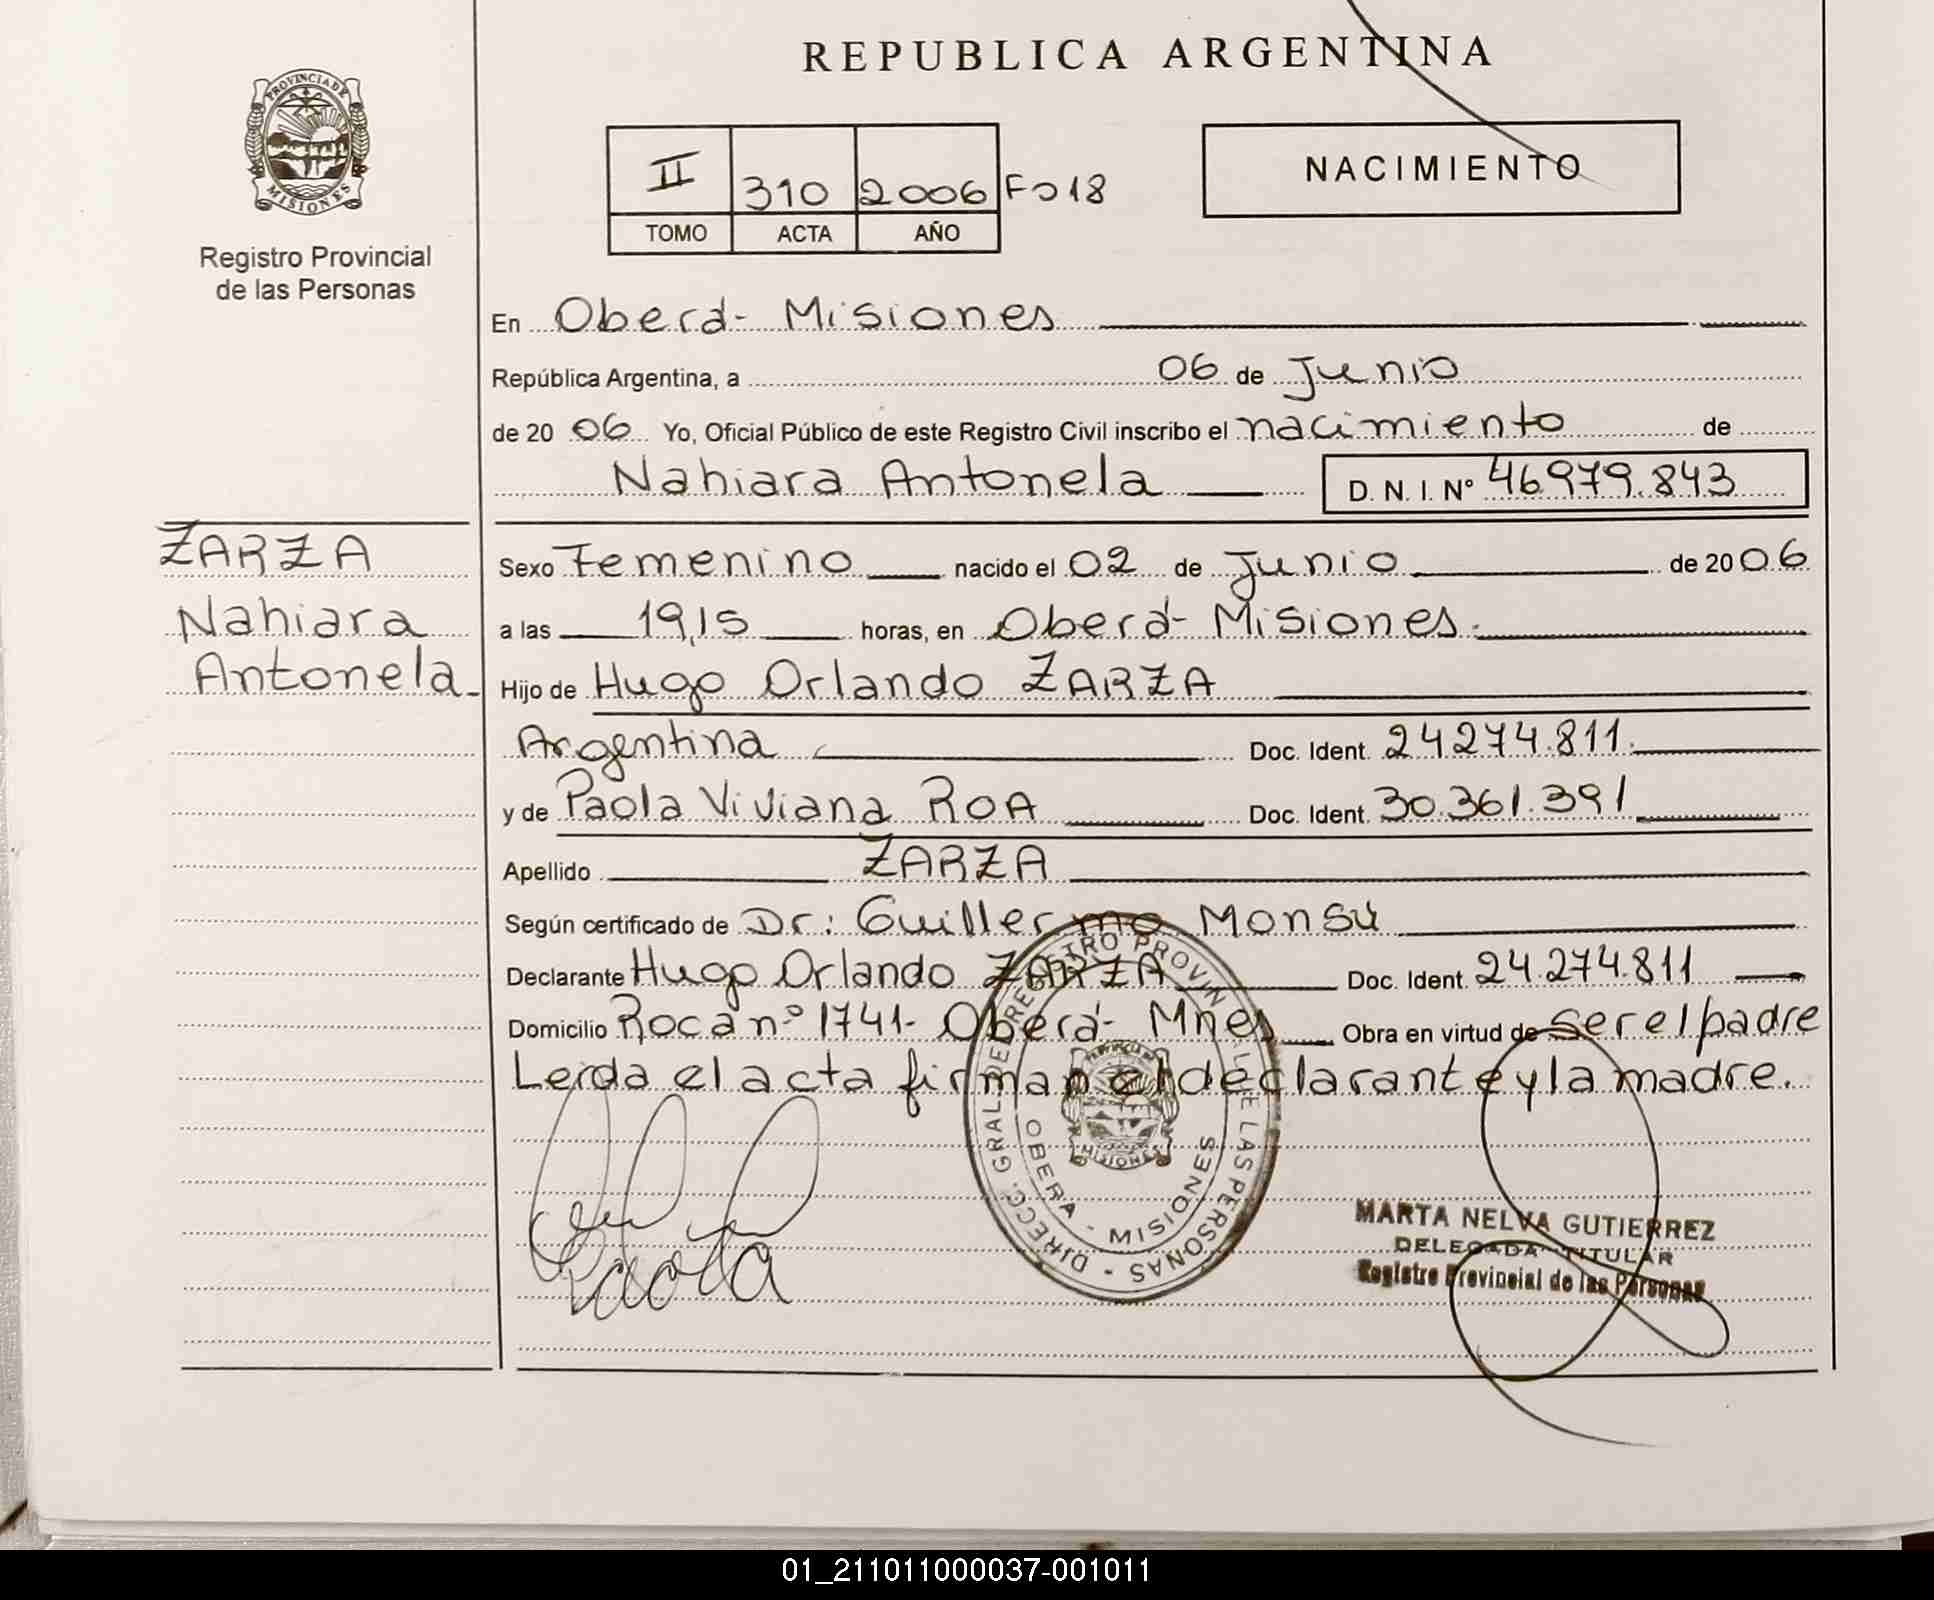 REPUBLICA ARGENTINA
PROVINCIA DE
MISIONES
Registro Provincial
de las Personas
II 310 2006 Fo 18
TOMO ACTA AÑO
NACIMIENTO
En Oberá- Misiones
República Argentina, a 06 de Junio
de 20 06 Yo, Oficial Público de este Registro Civil inscribo el nacimiento de
Nahiara Antonela D. N. I. Nº 46979.843
ZARZA
Nahiara
Antonela
Sexo Femenino nacido el 02 de Junio de 20 06
a las 19,15 horas, en Oberá- Misiones.
Hijo de Hugo Orlando ZARZA
Argentina Doc. Ident. 24274.811.
y de Paola Viviana ROA Doc. Ident. 30.361.391
Apellido ZARZA
Según certificado de Dr: Guillermo Monsú
Declarante Hugo Orlando ZARZA Doc. Ident. 24.274.811
Domicilio Roca nº 1741- Oberá- Mnes Obra en virtud de ser el padre
Leída el acta firman el declarante y la madre.
Paola
DIRECC. GRAL. DEL REGISTRO PROVINCIAL DE LAS PERSONAS -
OBERA - MISIONES
MISIONES
MARTA NELVA GUTIERREZ
DELEGADA TITULAR
Registro Provincial de las Personas
01_211011000037-001011